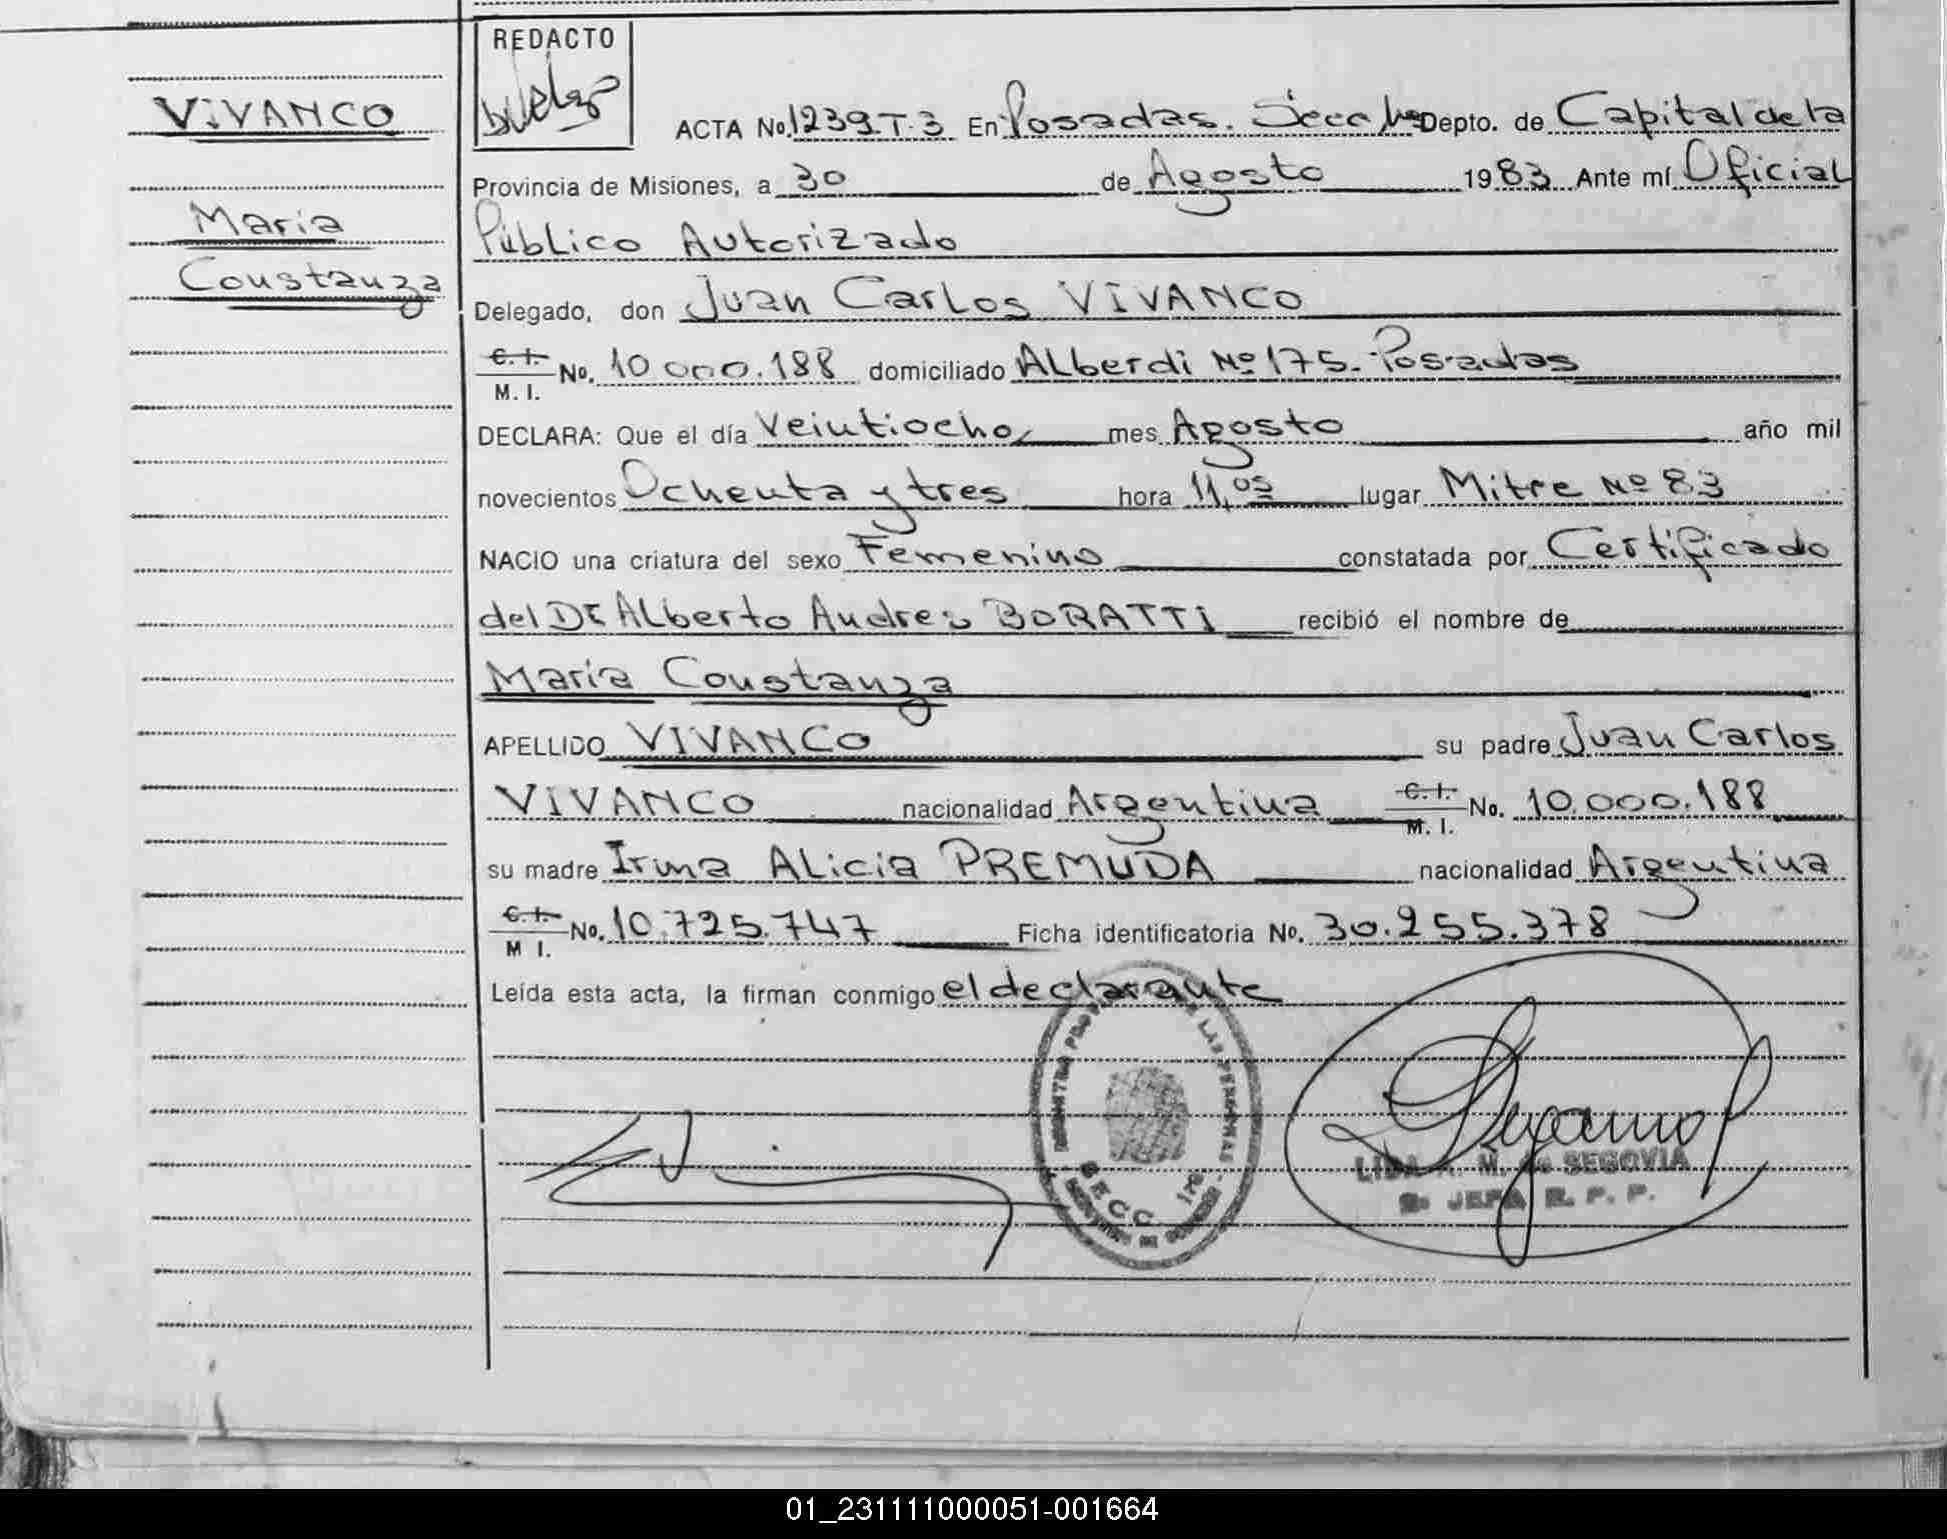 REDACTO
VIVANCO
María
Constanza
ACTA No. 1239 T.3 En Posadas. Depto. de Capital de la
Provincia de Misiones, a 30 de Agosto 1983 Ante mí Oficial
Público Autorizado
Delegado, don Juan Carlos VIVANCO
C. I. M. I. No. 10.000.188 domiciliado Alberdi Nº 175. Posadas
DECLARA: Que el día Veintiocho mes Agosto año mil
novecientos Ochenta y tres hora 11,05 lugar Mitre Nº 83
NACIO una criatura del sexo Femenino constatada por Certificado
del Dr Alberto Andres BORATTI recibió el nombre de
María Constanza
APELLIDO VIVANCO su padre Juan Carlos
VIVANCO nacionalidad Argentina C. I. M. I. No. 10.000.188
su madre Irma Alicia PREMUDA nacionalidad Argentina
C. I. M I. No. 10.725.747 Ficha identificatoria No. 30.255.378
Leída esta acta, la firman conmigo el declarante
DE LAS PERSONAS
SECC
M. de SEGOVIA
JEFA R. P. P.
01_231111000051-001664